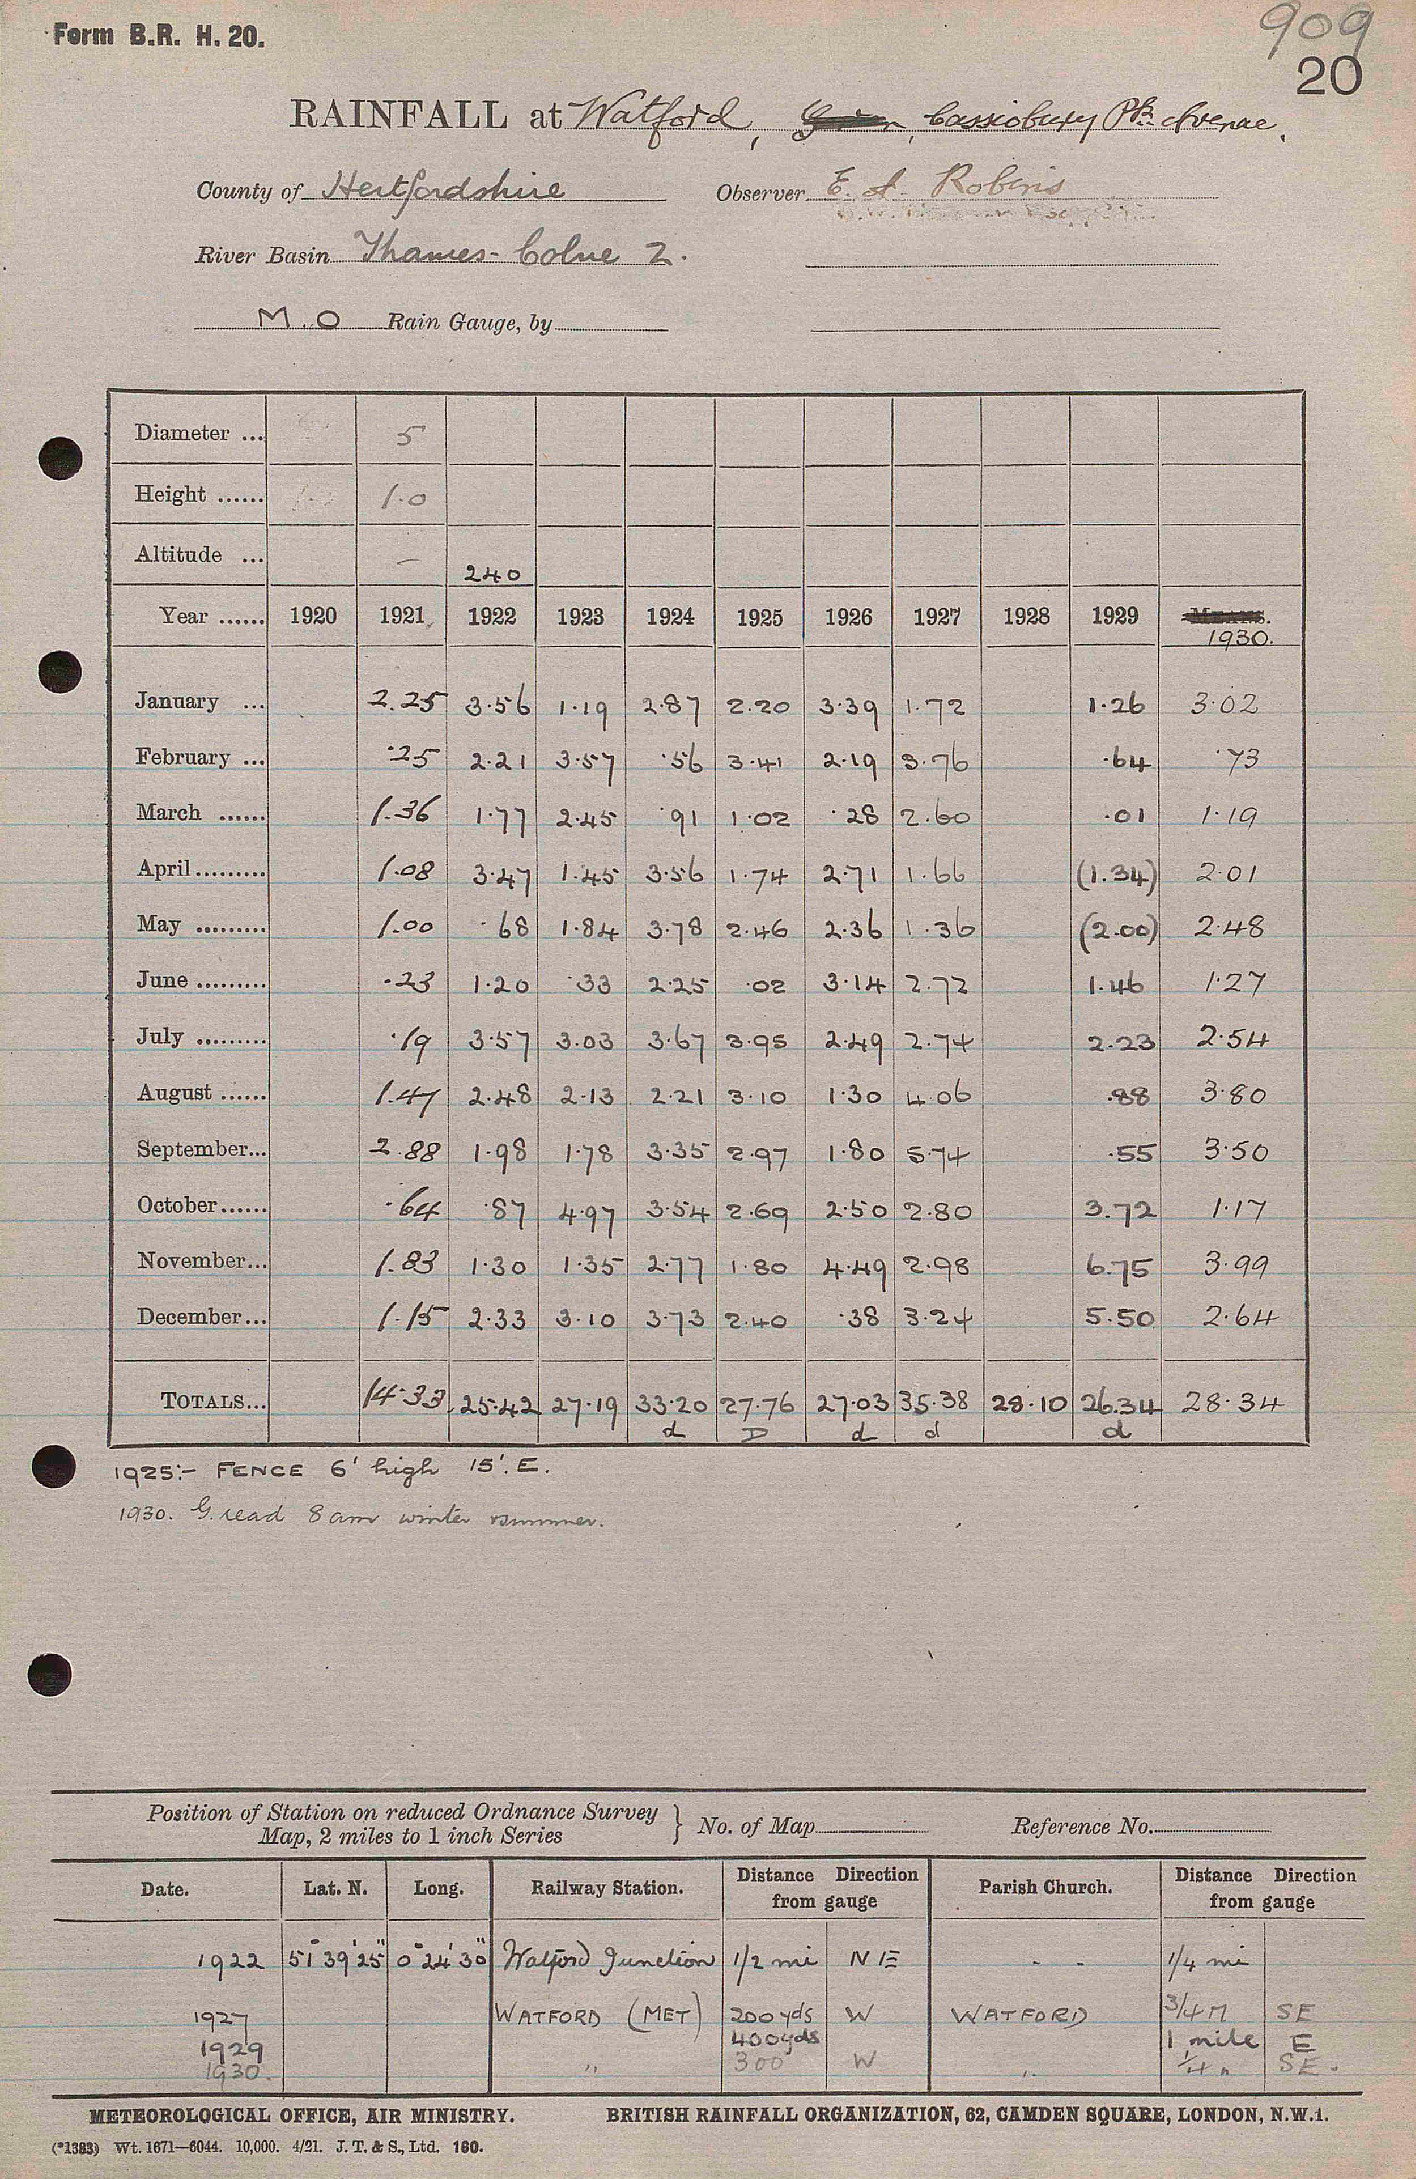 Form B.R. H. 20.
909
20
RAINFALL at Watford, Cassiobury Pk. Avenue.
County of Hertfordshire Observer E. A. Robins
River Basin Thames - Colne 2.
M.O Rain Gauge, by
Diameter ... 5
Height ...... 1.0
Altitude ... — 240
Year ...... 1920 1921 1922 1923 1924 1925 1926 1927 1928 1929 MEANS. 1930.
January ... 2.25 3.56 1.19 2.87 2.20 3.39 1.72 1.26 3.02
February ... .25 2.21 3.57 .56 3.41 2.19 3.76 .64 .73
March ...... 1.36 1.77 2.45 .91 1.02 .28 2.60 .01 1.19
April ......... 1.08 3.47 1.45 3.56 1.74 2.71 1.66 (1.34) 2.01
May ......... 1.00 .68 1.84 3.78 2.46 2.36 1.36 (2.00) 2.48
June ......... .23 1.20 .33 2.25 .02 3.14 2.72 1.46 1.27
July ......... .19 3.57 3.03 3.67 3.95 2.49 2.74 2.23 2.54
August ...... 1.47 2.48 2.13 2.21 3.10 1.30 4.06 .88 3.80
September... 2.88 1.98 1.78 3.35 2.97 1.80 5.74 .55 3.50
October ...... .64 .87 4.97 3.54 2.69 2.50 2.80 3.72 1.17
November... 1.83 1.30 1.35 2.77 1.80 4.49 2.98 6.75 3.99
December ... 1.15 2.33 3.10 3.73 2.40 .38 3.24 5.50 2.64
TOTALS... 14.33 25.42 27.19 33.20 27.76 27.03 35.38 28.10 26.34 28.34
d D d d d
1925:- FENCE 6' high 15'. E.
1930. G. read 8 am winter summer.
Position of Station on reduced Ordnance Survey
Map, 2 miles to 1 inch Series } No. of Map Reference No.
Date. Lat. N. Long. Railway Station. Distance Direction from gauge Parish Church. Distance Direction from gauge
1922 51° 39' 25" 0° 24' 30" Watford Junction 1/2 mi NE - - 1/4 mi
1927 WATFORD (MET) 200 yds W WATFORD 3/4 M SE
1929 400 yds 1 mile E
1930. " 300 W " 1/4 " SE.
METEOROLOGICAL OFFICE, AIR MINISTRY. BRITISH RAINFALL ORGANIZATION, 62, CAMDEN SQUARE, LONDON, N.W.1.
(*1383) Wt. 1671—6044. 10,000. 4/21. J. T. & S., Ltd. 160.